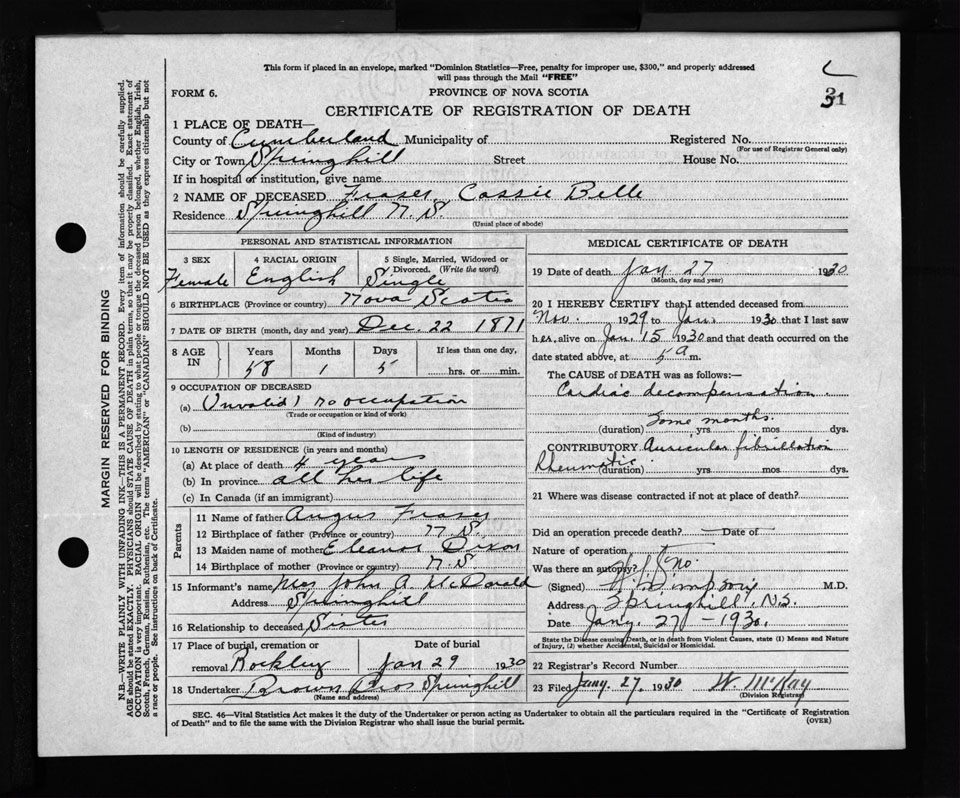 This form if placed in an envelope, marked "Dominion Statistics—Free, penalty for improper use, $300," and properly addressed
will pass through the Mail "FREE"
FORM 6.
PROVINCE OF NOVA SCOTIA
31
CERTIFICATE OF REGISTRATION OF DEATH
1 PLACE OF DEATH—
County of Cumberland Municipality of Registered No.
(For use of Registrar General only)
City or Town Springhill Street House No.
If in hospital or institution, give name
2 NAME OF DECEASED Fraser, Cassie Belle
Residence Springhill N.S.
(Usual place of abode)
PERSONAL AND STATISTICAL INFORMATION
3 SEX 4 RACIAL ORIGIN 5 Single, Married, Widowed or
Divorced. (Write the word)
Female English Single
6 BIRTHPLACE (Province or country) Nova Scotia
7 DATE OF BIRTH (month, day and year) Dec. 22 1871
8 AGE IN Years Months Days If less than one day,
58 1 5 hrs. or min.
9 OCCUPATION OF DECEASED
(a) (Invalid) no occupation
(Trade or occupation or kind of work)
(b)
(Kind of industry)
10 LENGTH OF RESIDENCE (in years and months)
(a) At place of death 4 years
(b) In province all her life
(c) In Canada (if an immigrant)
Parents
11 Name of father Angus Fraser
12 Birthplace of father (Province or country) N.S.
13 Maiden name of mother Eleanor Dixon
14 Birthplace of mother (Province or country) N.S
15 Informant's name Mrs John A. McDonald
Address Springhill
16 Relationship to deceased Sister
17 Place of burial, cremation or Date of burial
removal Rockley Jan 29 1930
18 Undertaker Brown Bros Springhill
(Name and address)
MEDICAL CERTIFICATE OF DEATH
19 Date of death Jan. 27 1930
(Month, day and year)
20 I HEREBY CERTIFY that I attended deceased from
Nov. 1929 to Jan. 1930 that I last saw
her alive on Jan. 15 1930 and that death occurred on the
date stated above, at 5 a m.
The CAUSE of DEATH was as follows:—
Cardiac decompensation.
Some months.
(duration) yrs mos dys.
CONTRIBUTORY Auricular fibrillation
Rheumatic (duration) yrs. mos dys.
21 Where was disease contracted if not at place of death?
Did an operation precede death? — Date of
Nature of operation
Was there an autopsy? No.
(Signed) Simpson M.D.
Address Springhill, N.S.
Date Jany. 27 - 1930.
State the Disease causing Death, or in death from Violent Causes, state (1) Means and Nature
of Injury, (2) whether Accidental, Suicidal or Homicidal.
22 Registrar's Record Number
23 Filed Jany. 27, 1930 W McKay
(Division Registrar)
SEC. 46—Vital Statistics Act makes it the duty of the Undertaker or person acting as Undertaker to obtain all the particulars required in the "Certificate of Registration
of Death" and to file the same with the Division Registrar who shall issue the burial permit.
(OVER)
MARGIN RESERVED FOR BINDING
N.B.—WRITE PLAINLY WITH UNFADING INK—THIS IS A PERMANENT RECORD. Every item of information should be carefully supplied.
AGE should be stated EXACTLY. PHYSICIANS should STATE CAUSE OF DEATH in plain terms, so that it may be properly classified. Exact statement of
OCCUPATION is very important. RACIAL ORIGIN will be described by stating to what people or tongue the deceased person belonged, whether English, Irish,
Scotch, French, German, Russian, Ruthenian, etc. The terms "AMERICAN" or "CANADIAN" SHOULD NOT BE USED as they express citizenship but not
a race or people. See instructions on back of Certificate.